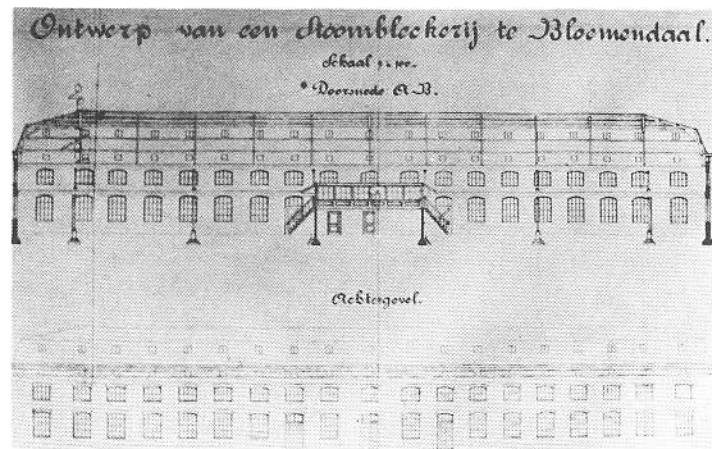 Ontwerp van een Stoombleekerij te Bloemendaal.
Schaal 1 à 100.
Doorsnede A-B.
Achtergevel.